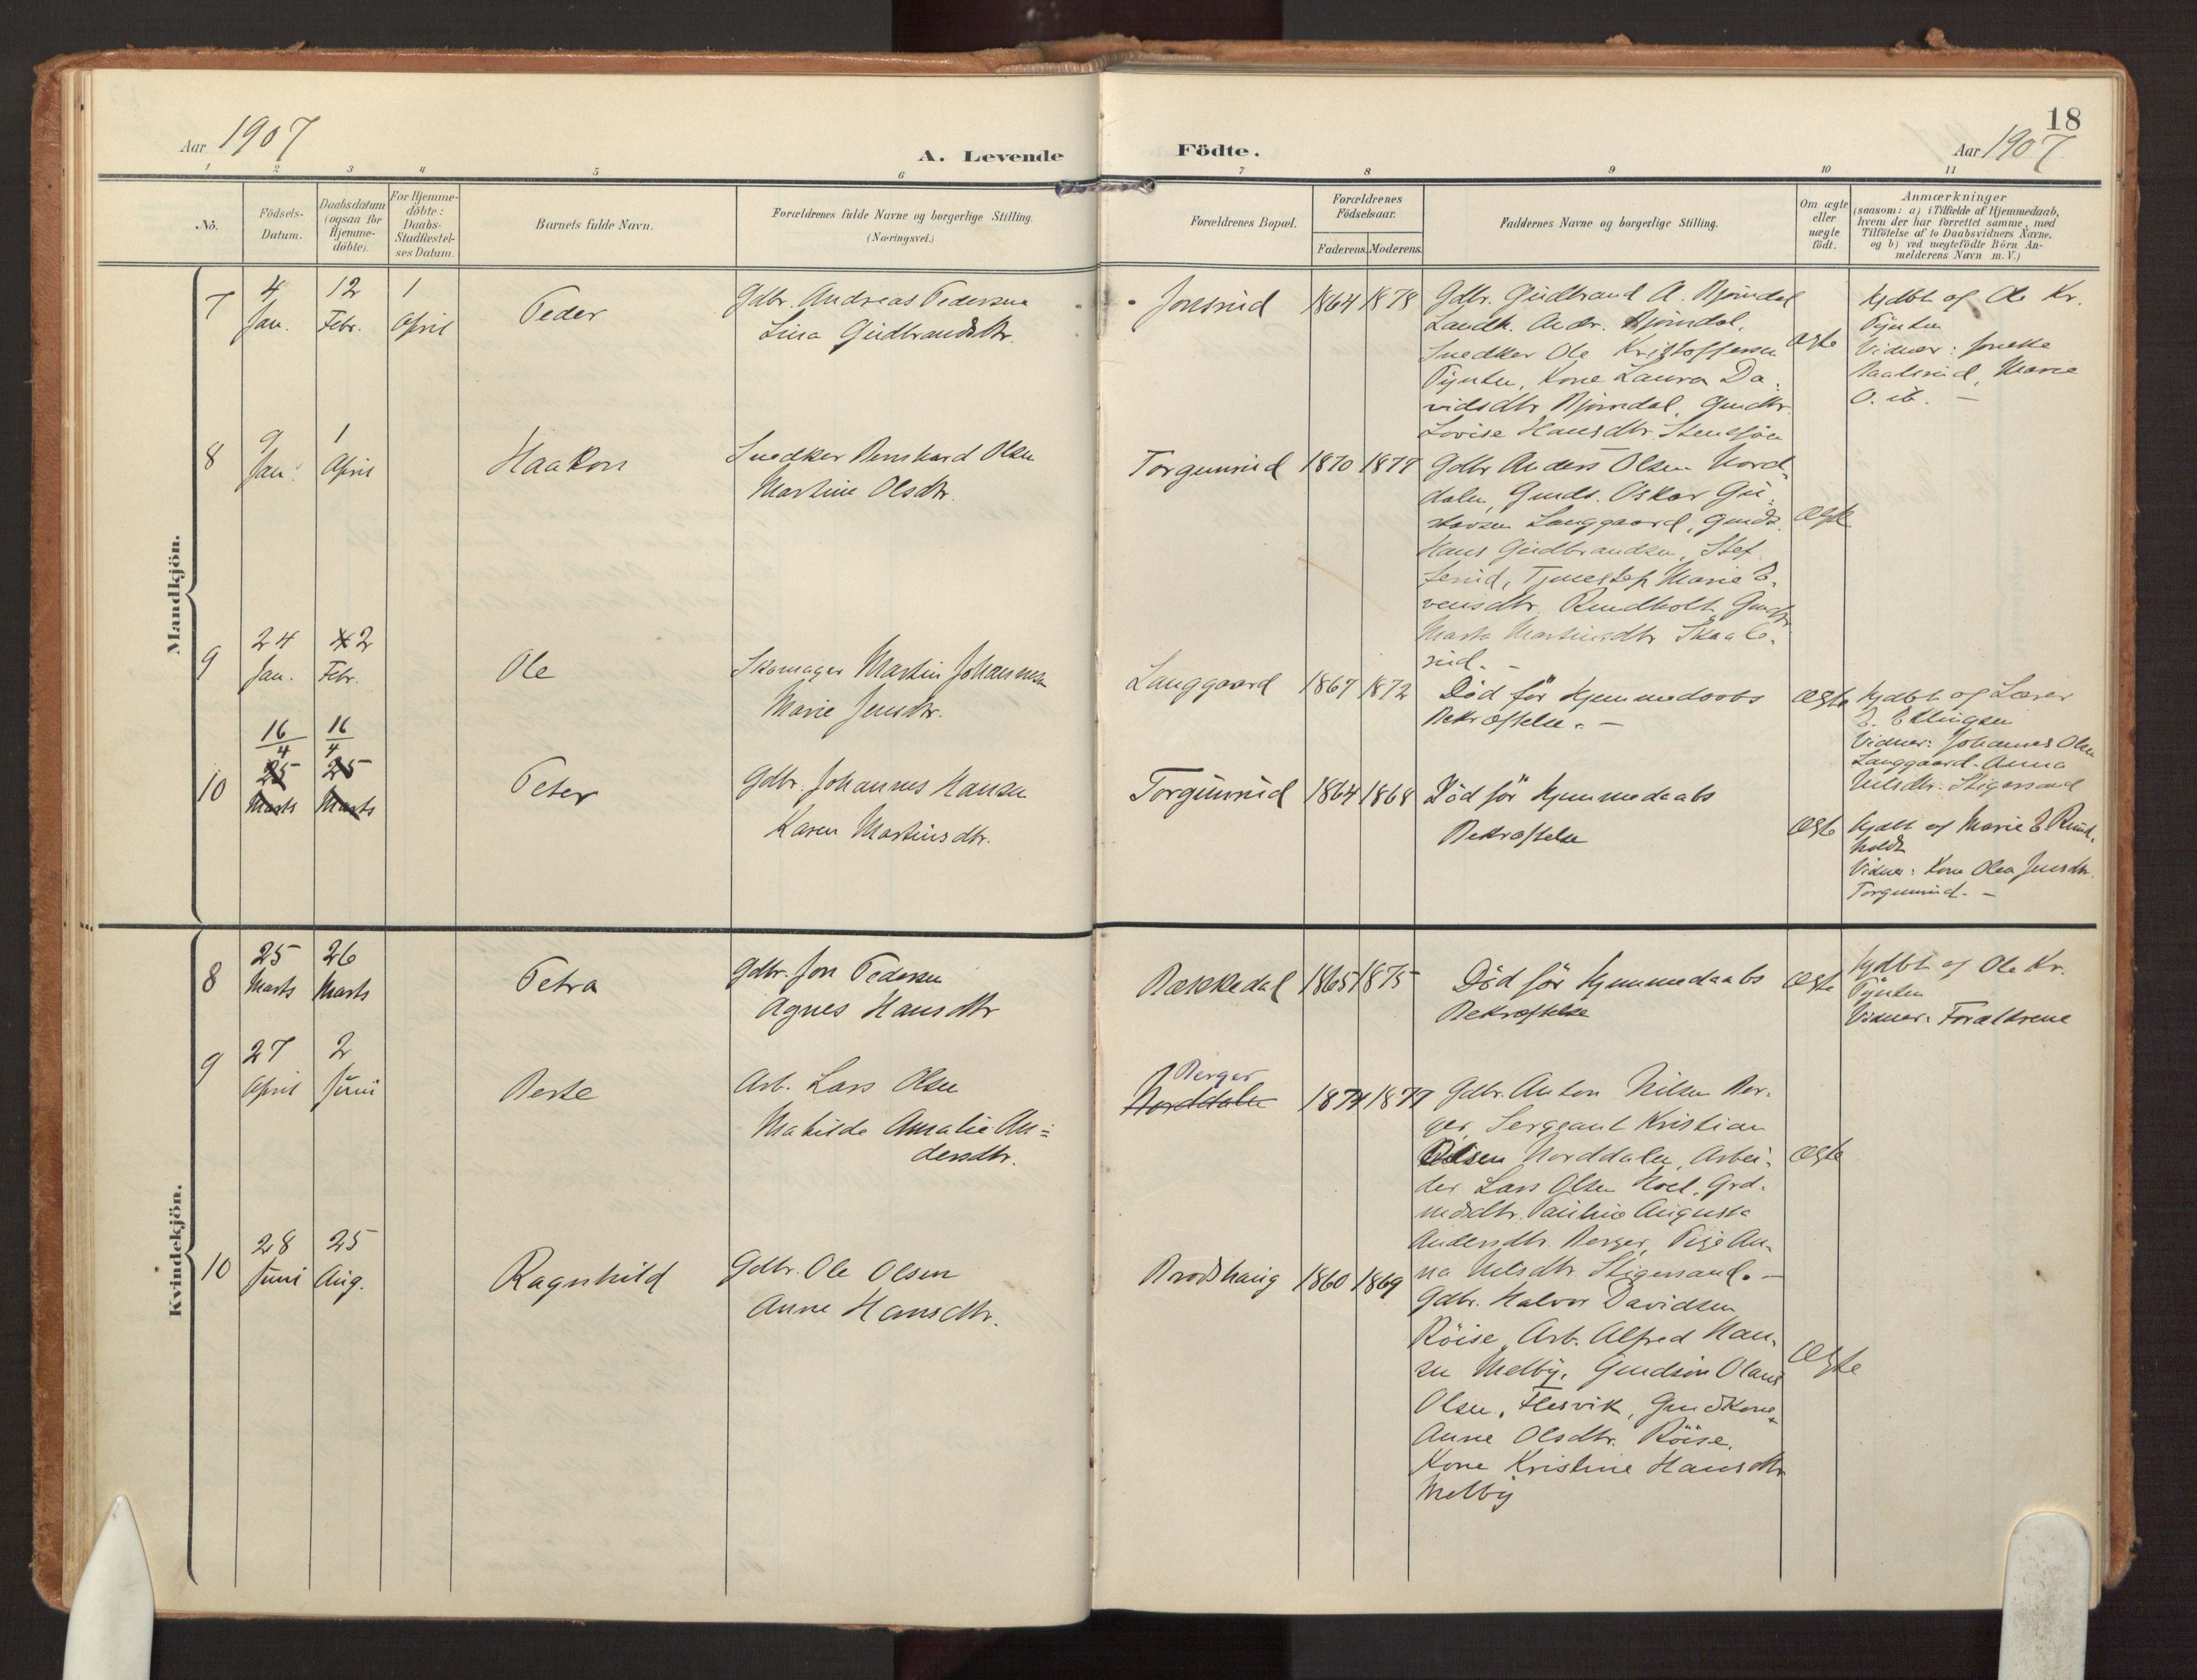 Aar 1907
A. Levende
Födte.
18
Aar 1907.
1 2 3 4 5 6 7 8 9 10 11
No.
Födsels-
Datum.
Daabsdatum
(ogsaa for
Hjemme-
döbte).
For Hjemme-
döbte:
Daabs-
Stadfæstel-
ses Datum.
Barnets fulde Navn.
Forældrenes fulde Navne og borgerlige Stilling.
(Næringsvei.)
Forældrenes Bopæl.
Forældrenes
Födselsaar.
Faderens. Moderens.
Faddernes Navne og borgerlige Stilling.
Om ægte
eller
uægte
födt.
Anmærkninger
(saasom: a) i Tilfælde af Hjemmedaab,
hvem der har forrettet samme, med
Tilföielse af to Daabsvidners Navne.
og b) ved uægtefödte Börn An-
melderens Navn m. V.)
Mandkjön.
7
4
Jan.
12
Febr.
1
April
Peder
Gdbr. Andreas Pedersen
Lina Gudbrandsdtr.
Jonsrud
1864 1878
Gdbr. Gudbrand A. Bjørndal
Landh. Andr. Bjørndal,
Snedker Ole Kristoffersen
Tynten, Kone Laura Da-
vidsdtr. Bjørndal, Gmdtr.
Lovise Hansdtr. Stensjøen
ægte
hjdbt af Ole Kr.
Tynten
Vidner: Jonette
Marie
O. ib. –
8
9
Jan.
1
April
Haakon
Snedker Bernhard Olsen
Martine Olsdtr.
Torgunrud
1870 1877
Gdbr Anders Olsen Nord-
dalen, Gmds. Oskar Gu-
stavsen Langgaard, Gmds.
Hans Gudbrandsen, Stef-
ferud, Tjenestep Marie E-
vensdtr. Rundholt, Gmdtr
Marta Martinsdtr Skaale-
rud. –
ægte
9
24
Jan.
2
Febr.
Ole
Skomager Martin Johannesen
Marie Jensdtr.
Langgaard
1867 1872
Död för hjemmedaabs
Bekræftelse. –
ægte
hjdbt af Lærer
E. Ellingsen
Vidner: Johannes Olsen
Langgaard. Anna
Nilsdtr. Stigersand
10
16
4
25
Marts
16
4
25
Marts
Peter
Gdbr. Johannes Hansen
Karen Martinsdtr.
Torgunrud
1864 1868
Död för hjemmedaabs
Bekræftelse
ægte
hjdbt af Marie E. Rund-
holdt
Vidner: Kone Olea Jensdtr.
Torgunrud. –
Kvindekjön.
8
25
Marts
26
Marts
Petra
Gdbr. Jon Pedersen
Agnes Hansdtr
Bækkedal
1865 1875
Död för hjemmedaabs
Bekræftelse
ægte
hjdbt af Ole Kr.
Tynten
Vidner: Forældrene
9
27
April
2
Juni
Berte
Arb. Lars Olsen
Mathilde Amalie An=
dersdtr.
Berger
Norddalen
1874 1877
Gdbr. Anton Nilsen Ber-
ger, Sergeant Kristian
Olsen Norddalen, Arbei-
der Lars Olsen Hoel, Grd-
mdsdtr. Pauline Augusta
Andersdtr. Berger, Pige An-
na Nilsdtr. Stigersand. –
ægte
10
28
Juni
25
Aug.
Ragnhild
Gdbr. Ole Olsen
Anne Hansdtr.
Brodshaug
1860 1869
Gdbr. Halvor Davidsen
Röise, Arb. Alfred Han-
sen Melby, Gmdsøn Olaus
Olsen, Flesvik, Gmdkone
Anne Olsdtr. Röise,
Kone Kristine Hansdtr
Melby
ægte